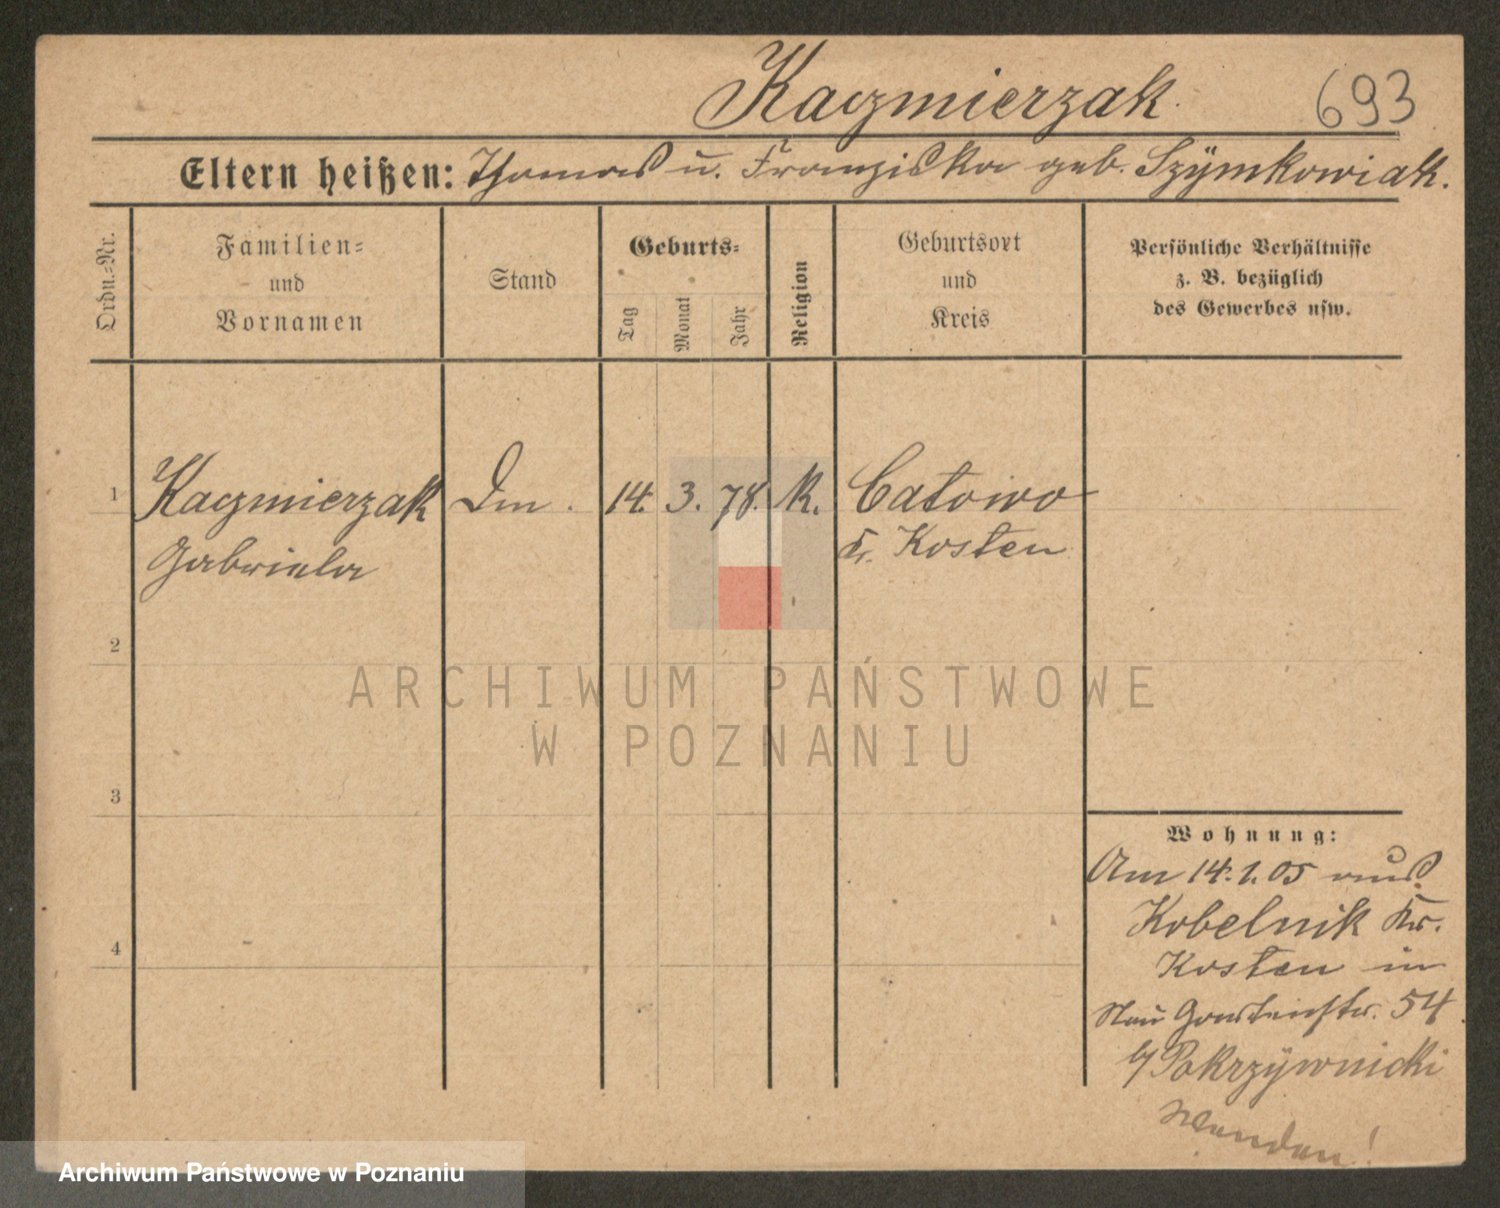 Kaczmierzak 693
Eltern heißen: Thomas u. Franziska geb. Szÿmkowiak.
Ordn.-Nr.
Familien-
und
Vornamen
Stand
Geburts-
Tag
Monat
Jahr
Religion
Geburtsort
und
Kreis
Persönliche Verhältnisse
z. B. bezüglich
des Gewerbes usw.
1 Kaczmierzak 14. 3. 78. K.
Gabriela Kr. Kosten
2
ARCHIWUM PAŃSTWOWE
W POZNANIU
3
Wohnung:
Am 14.1.05 aus
Kobelnik Kr.
4
Kosten in
54
b/ Pokrzÿwnicki
wenden!
Archiwum Państwowe w Poznaniu